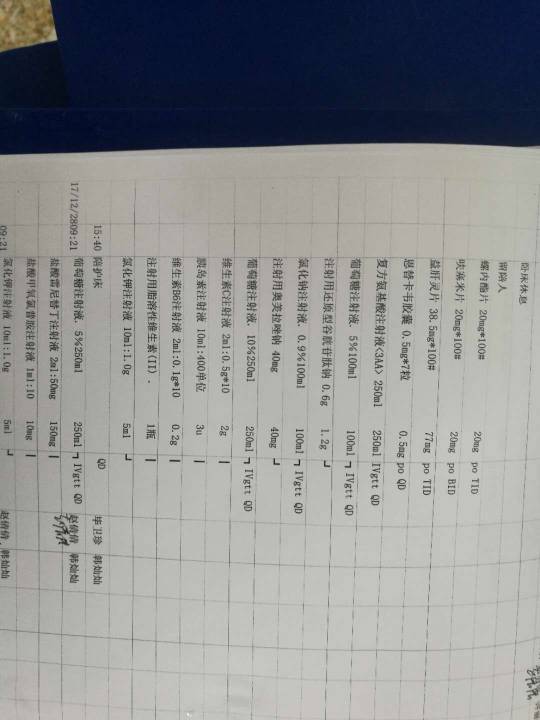 卧床休息
留陪人
螺内酯片 20mg*100# 20mg po TID
呋塞米片 20mg*100# 20mg po BID
益肝灵片 38.5mg*100# 77mg po TID
恩替卡韦胶囊 0.5mg*7粒 0.5mg po QD
复方氨基酸注射液<3AA> 250ml 250ml IVgtt QD
葡萄糖注射液 5%100ml 100ml ┐ IVgtt QD
注射用还原型谷胱甘肽钠 0.6g 1.2g ┘
氯化钠注射液. 0.9%100ml 100ml ┐ IVgtt QD
注射用奥美拉唑钠 40mg 40mg ┘
葡萄糖注射液. 10%250ml 250ml ┐ IVgtt QD
维生素C注射液 2ml:0.5g*10 2g |
胰岛素注射液 10ml:400单位 3u |
维生素B6注射液 2ml:0.1g*10 0.2g |
注射用脂溶性维生素(II). 1瓶 |
氯化钾注射液 10ml:1.0g 5ml ┘
15:40 陪护床 QD 毕卫珍 韩灿灿
17/12/2809:21 葡萄糖注射液. 5%250ml 250ml ┐ IVgtt QD 赵倩倩 韩灿灿
盐酸雷尼替丁注射液 2ml:50mg 150mg |
盐酸甲氧氯普胺注射液 1ml:10 10mg |
09:21 氯化钾注射液 10ml:1.0g 5ml ┘ 赵倩倩 韩灿灿